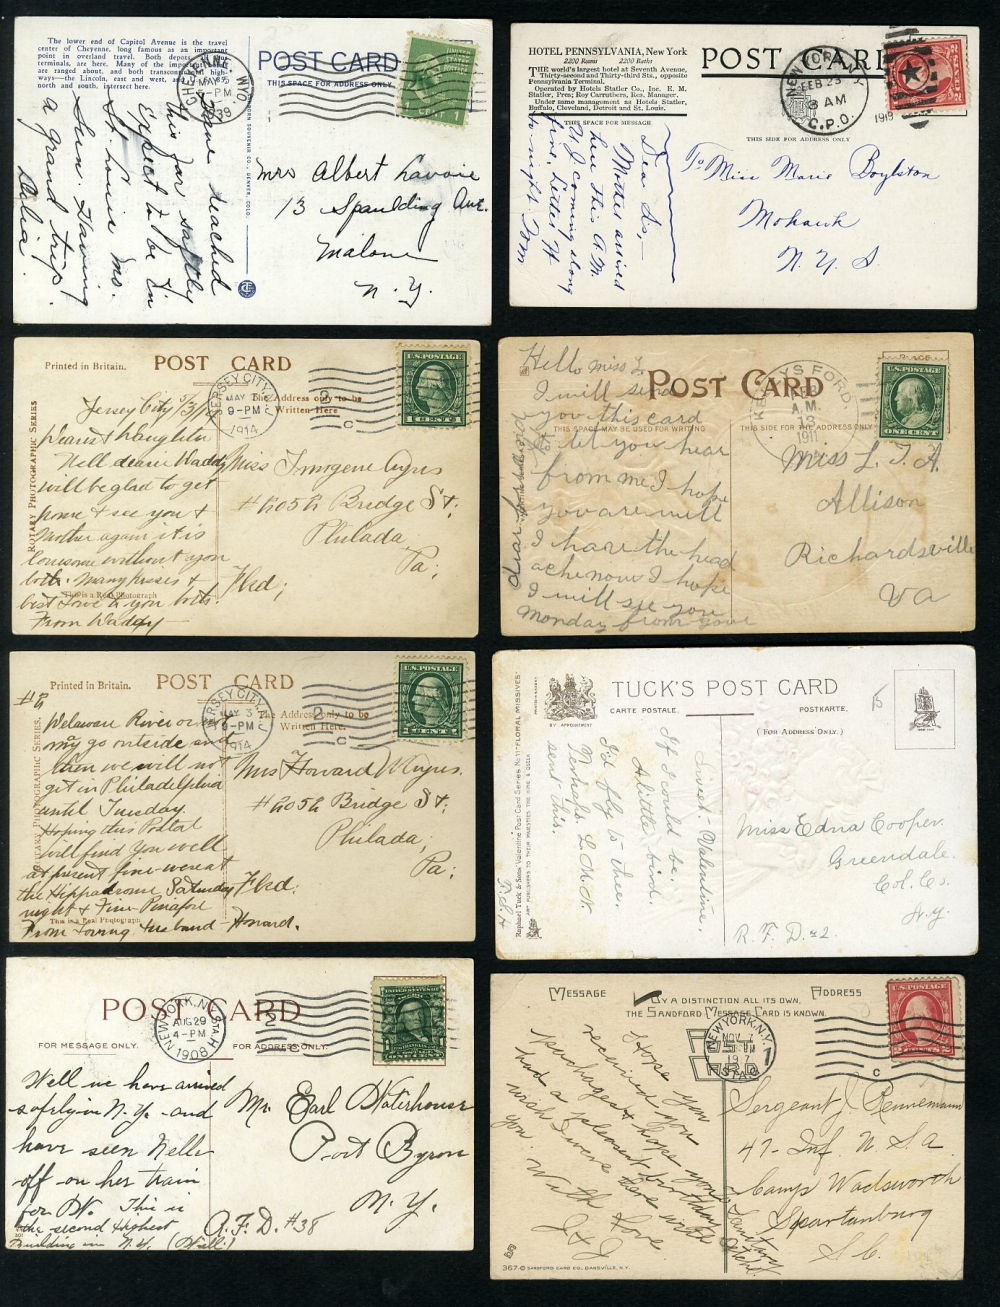 The lower end of Capitol Avenue is the travel
center of Cheyenne, long famous as an important
point in overland travel. Both depots,
terminals, are here. Many of the
are ranged about, and both transcontinental high-
ways—the Lincoln, east and west,
north and south, intersect here.
POST CARD
THIS SPACE FOR ADDRESS ONLY
CHEYENNE WYO.
MAY 25
5-PM
1939
have reached
this far safely
Expect to be in
St. Louis Mo.
Sun. Having
a grand trip.
Delia.
Mrs Albert Lavoie
13 Spaulding Ave.
Malone
N.Y.
HOTEL PENNSYLVANIA, New York
2200 Rooms 2200 Baths
THE world's largest hotel at Seventh Avenue,
Thirty-second and Thirty-third Sts., opposite
Pennsylvania Terminal.
Operated by Hotels Statler Co., Inc. E. M.
Statler, Pres; Roy Carruthers, Res. Manager.
Under same management as Hotels Statler,
Buffalo, Cleveland, Detroit and St. Louis.
POST CARD
THIS SPACE FOR MESSAGE
THIS SIDE FOR ADDRESS ONLY
NEW YORK, N.Y.
FEB 23
3 AM
G.P.O.
1919
Dear Sis,—
Mother arrived
here this A.M.
coming along
fine.
tonight Tom
To Miss Marie Boylston
Mohawk
N. Y. S
Printed in Britain.
POST CARD
The Address only to be
Written Here
ROTARY PHOTOGRAPHIC SERIES
This is a Real Photograph
JERSEY CITY, N.J.
MAY 3
9-PM
1914
U.S. POSTAGE
1 CENT 1
Jersey City 5/3/14
Dearest Daughter
Well dearie Waddy
will be glad to get
home & see you &
Mother again it is
lonesome without you
both. Many kisses &
best Love to you both.
From Waddy
Miss Imogene Ayres
# 2052 Bridge St;
Philada
Pa;
Fkd;
POST CARD
THIS SPACE MAY BE USED FOR WRITING
THIS SIDE FOR THE ADDRESS ONLY
KEYS FORD
A.M.
12
1911
U.S. POSTAGE
ONE CENT
Hello Miss L.
I will send
you this card
to let you hear
from me I hope
you are well
I have the head
ache now I hope
I will see you
Monday from your
Miss L. T. A.
Allison
Richardsville
Va
#2
Printed in Britain.
POST CARD
The Address only to be
Written Here.
ROTARY PHOTOGRAPHIC SERIES.
This is a Real Photograph
JERSEY CITY, N.J.
MAY 3
9-PM
1914
U.S. POSTAGE
1 CENT 1
Delaware River or we
may go outside and
then we will not
get in Philadelphia
until Tuesday.
Hoping this Postal
will find you well
at present fine were at
the Hippodrome Saturday
night & Fine Pinafore
From Loving Husband Howard.
Mrs Howard W Ayres.
# 2052 Bridge St;
Philada;
Pa;
Fkd.
TUCK'S POST CARD
CARTE POSTALE. POSTKARTE.
(FOR ADDRESS ONLY.)
BY APPOINTMENT
Raphael Tuck & Sons' Valentine Post Card Series No. 11 "FLORAL MISSIVES"
ART PUBLISHERS TO THEIR MAJESTIES THE KING & QUEEN
Sweet Valentine,
If I could be,
A little bird,
I'd fly to thee.
sent this.
Miss Edna Cooper.
Greendale.
Col. Co.
N.Y.
R. F. D. #2
POST CARD
FOR MESSAGE ONLY.
FOR ADDRESS ONLY.
NEW YORK, N.Y. STA. H
AUG 29
4-PM
1908
Well we have arrived
safely in N.Y. and
have seen Nelle
off on her train
for
This is
the second highest
building in N.Y. (Will)
Mr. Earl Waterhouse
Port Byron
N. Y.
R. F. D. #38
MESSAGE
BY A DISTINCTION ALL ITS OWN,
THE SANDFORD MESSAGE CARD IS KNOWN.
ADDRESS
POST
CARD
NEW YORK, N.Y.
NOV 7
U.S. POSTAGE
2 CENTS 2
I Hope you
received you
packages & hope you
had a pleasant birthday
wish I were there with
you. With love
J & J
Sergeant J. Rennemann
47 - Inf U S A
Camp Wadsworth
Spartanburg
S. C.
Sanitary
367 © SANDFORD CARD CO., DANSVILLE, N.Y.